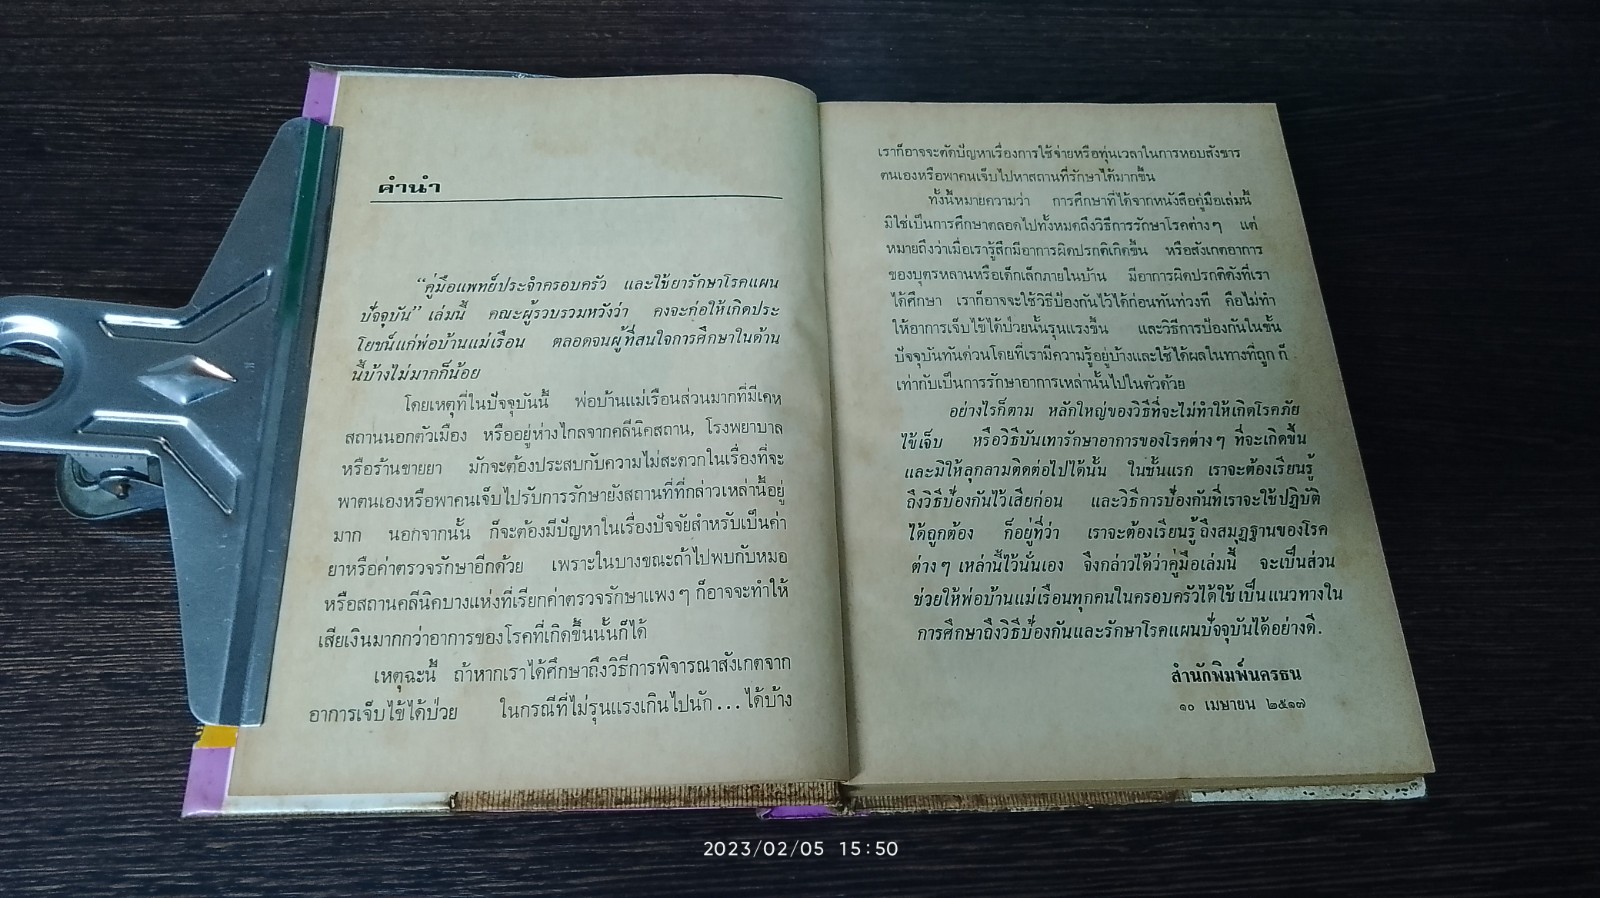 คำนำ
“คู่มือแพทย์ประจำครอบครัว และใช้ยารักษาโรคแผน
ปัจจุบัน” เล่มนี้ คณะผู้รวบรวมหวังว่า คงจะก่อให้เกิดประ
โยชน์แก่พ่อบ้านแม่เรือน ตลอดจนผู้ที่สนใจการศึกษาในด้าน
นี้บ้างไม่มากก็น้อย
โดยเหตุที่ในปัจจุบันนี้ พ่อบ้านแม่เรือนส่วนมากที่มีเคห
สถานนอกตัวเมือง หรืออยู่ห่างไกลจากคลีนิคสถาน, โรงพยาบาล
หรือร้านขายยา มักจะต้องประสบกับความไม่สะดวกในเรื่องที่จะ
พาตนเองหรือพาคนเจ็บไปรับการรักษายังสถานที่ที่กล่าวเหล่านี้อยู่
มาก นอกจากนั้น ก็จะต้องมีปัญหาในเรื่องปัจจัยสำหรับเป็นค่า
ยาหรือค่าตรวจรักษาอีกด้วย เพราะในบางขณะถ้าไปพบกับหมอ
หรือสถานคลีนิคบางแห่งที่เรียกค่าตรวจรักษาแพงๆ ก็อาจจะทำให้
เสียเงินมากกว่าอาการของโรคที่เกิดขึ้นนั้นก็ได้
เหตุฉะนี้ ถ้าหากเราได้ศึกษาถึงวิธีการพิจารณาสังเกตจาก
อาการเจ็บไข้ได้ป่วย ในกรณีที่ไม่รุนแรงเกินไปนัก... ได้บ้าง
เราก็อาจจะตัดปัญหาเรื่องการใช้จ่ายหรือทุ่นเวลาในการหอบสังขาร
ตนเองหรือพาคนเจ็บไปหาสถานที่รักษาได้มากขึ้น
ทั้งนี้หมายความว่า การศึกษาที่ได้จากหนังสือคู่มือเล่มนี้
มิใช่เป็นการศึกษาตลอดไปทั้งหมดถึงวิธีการรักษาโรคต่างๆ แต่
หมายถึงว่าเมื่อเรารู้สึกมีอาการผิดปรกติเกิดขึ้น หรือสังเกตอาการ
ของบุตรหลานหรือเด็กเล็กภายในบ้าน มีอาการผิดปรกติดังที่เรา
ได้ศึกษา เราก็อาจจะใช้วิธีป้องกันไว้ได้ก่อนทันท่วงที คือไม่ทำ
ให้อาการเจ็บไข้ได้ป่วยนั้นรุนแรงขึ้น และวิธีการป้องกันในขั้น
ปัจจุบันทันด่วนโดยที่เรามีความรู้อยู่บ้างและใช้ได้ผลในทางที่ถูก ก็
เท่ากับเป็นการรักษาอาการเหล่านั้นไปในตัวด้วย
อย่างไรก็ตาม หลักใหญ่ของวิธีที่จะไม่ทำให้เกิดโรคภัย
ไข้เจ็บ หรือวิธีบันเทารักษาอาการของโรคต่างๆ ที่จะเกิดขึ้น
และมิให้ลุกลามติดต่อไปได้นั้น ในชั้นแรก เราจะต้องเรียนรู้
ถึงวิธีป้องกันไว้เสียก่อน และวิธีการป้องกันที่เราจะใช้ปฏิบัติ
ได้ถูกต้อง ก็อยู่ที่ว่า เราจะต้องเรียนรู้ถึงสมุฏฐานของโรค
ต่างๆ เหล่านี้ไว้นั่นเอง จึงกล่าวได้ว่าคู่มือเล่มนี้ จะเป็นส่วน
ช่วยให้พ่อบ้านแม่เรือนทุกคนในครอบครัวได้ใช้เป็นแนวทางใน
การศึกษาถึงวิธีป้องกันและรักษาโรคแผนปัจจุบันได้อย่างดี.
สำนักพิมพ์นครธน
๑๐ เมษายน ๒๕๑๗
2023/02/05 15:50